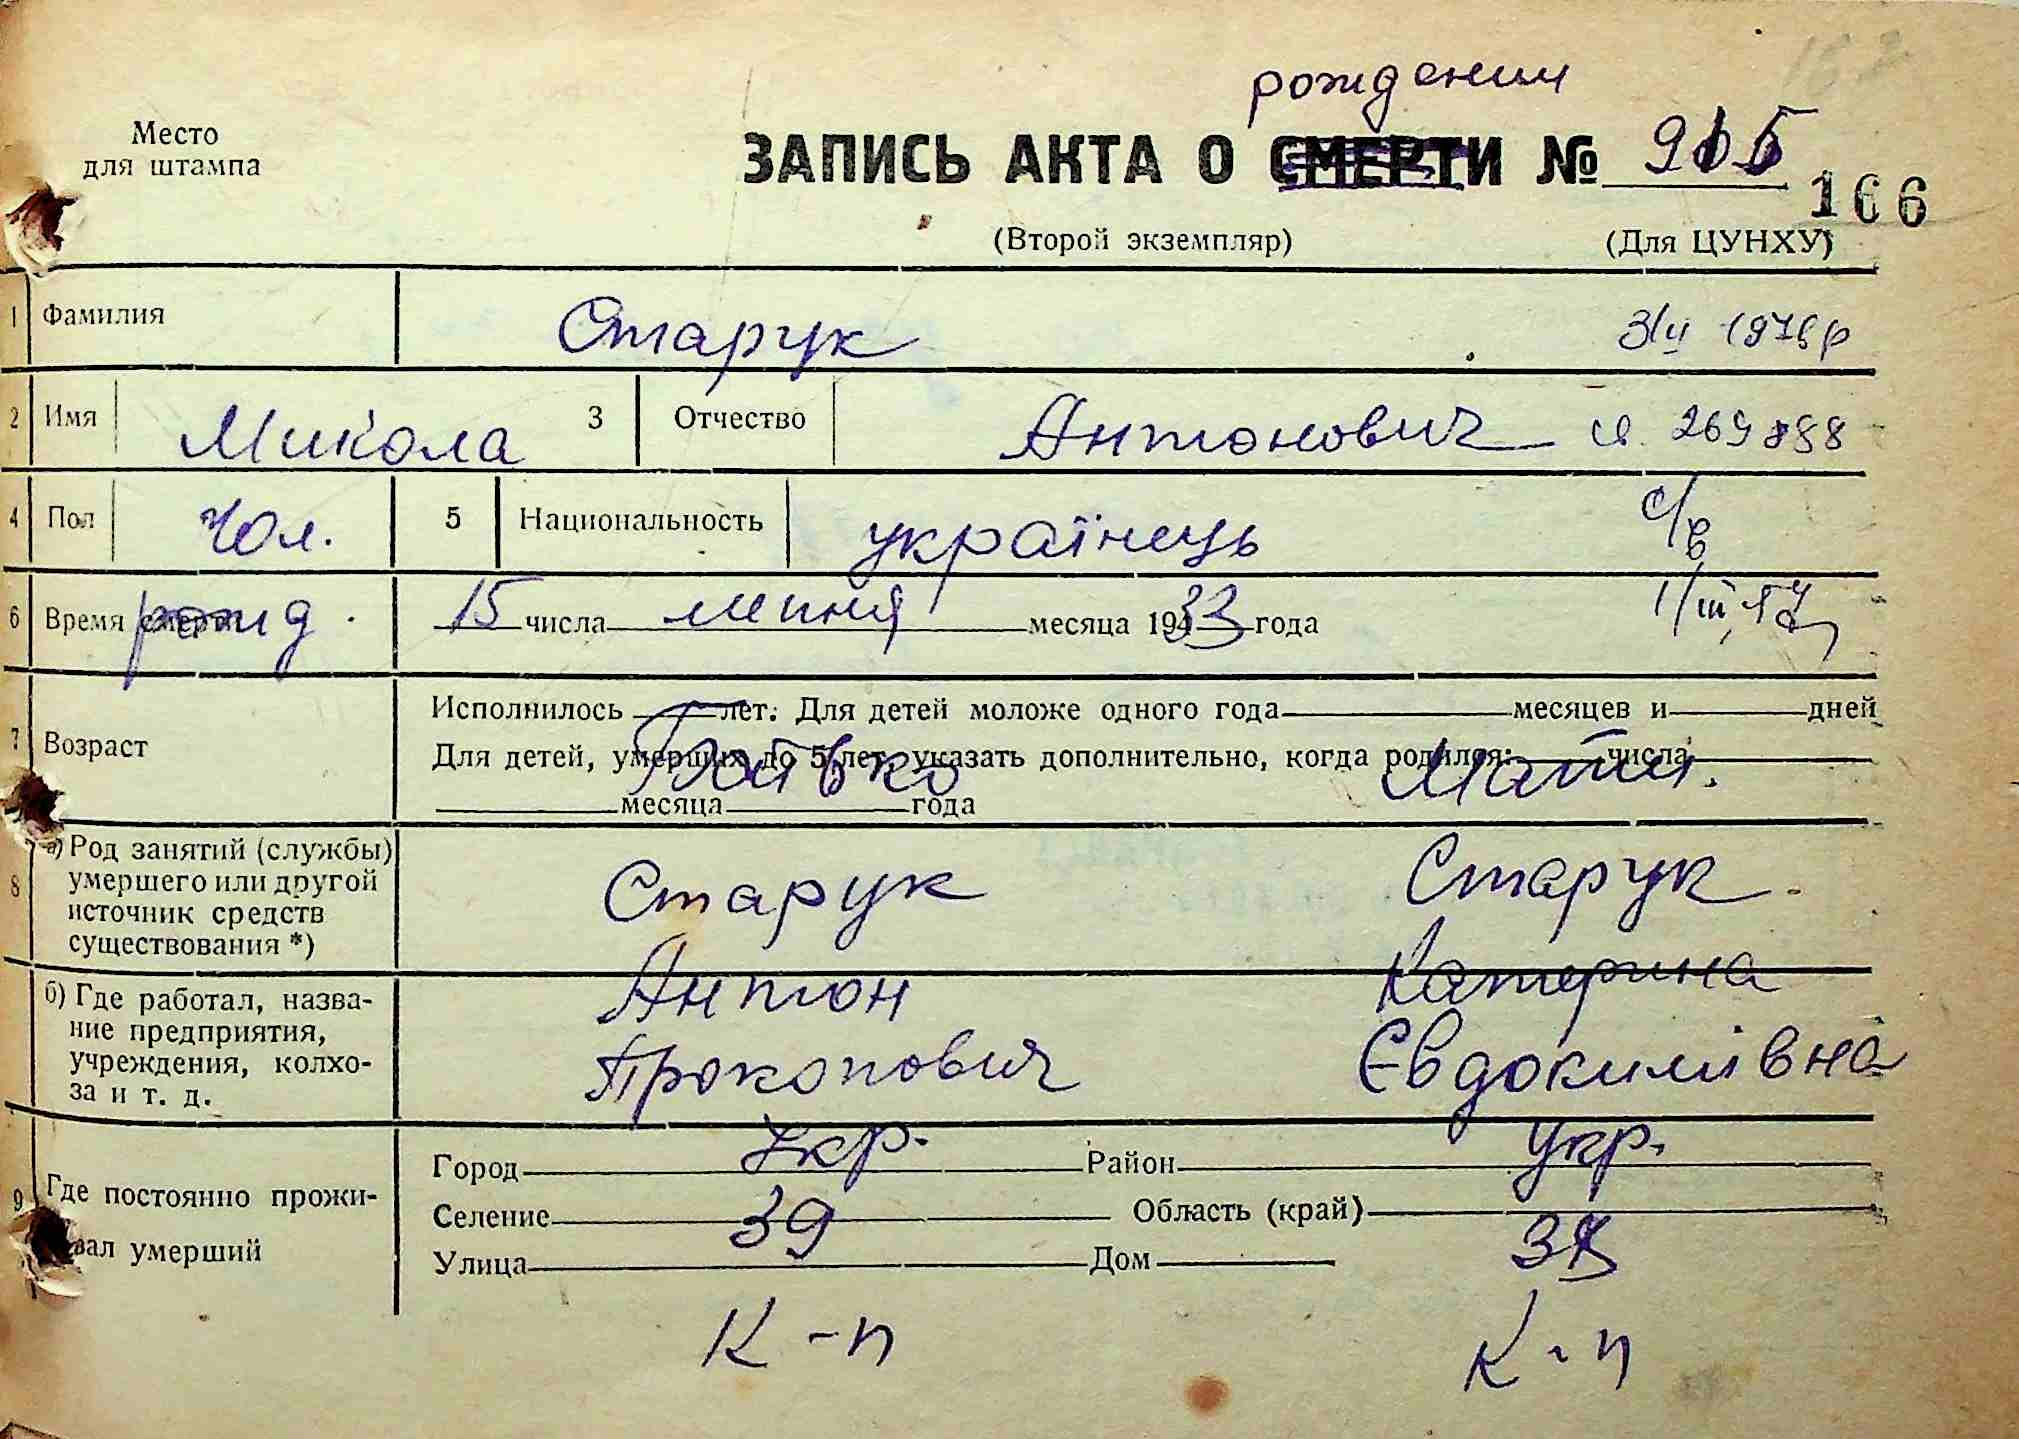 рождении
Место
для штампа
ЗАПИСЬ АКТА О СМЕРТИ № 915
166
(Второй экземпляр) (Для ЦУНХУ)
1 Фамилия Старук
2 Имя Микола 3 Отчество Антонович 269888
4 Пол Чол. 5 Национальность українець с/в
6 Время рожд. 15 числа липня месяца 1933 года
7 Возраст Исполнилось лет. Для детей моложе одного года месяцев и дней
Для детей, умерших до 5 лет, указать дополнительно, когда родился: числа
Батько Мати.
месяца года
8 а) Род занятий (службы)
умершего или другой
источник средств
существования *)
Старук Старук
Антон Катерина
б) Где работал, назва-
ние предприятия,
учреждения, колхо-
за и т. д.
Прокопович Євдокимівна
9 Где постоянно прожи-
вал умерший
Город Укр. Район Укр.
Селение 39 Область (край) 37
Улица Дом
К-п К-п